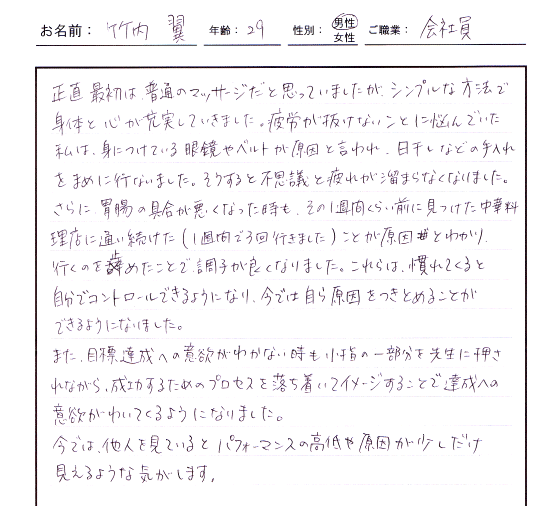 お名前： 竹内 翼 年齢： 29 性別： 男性 女性 ご職業： 会社員
正直 最初は、普通のマッサージだと思っていましたが、シンプルな方法で
身体と心が充実していきました。疲労が抜けないことに悩んでいた
私は、身につけている眼鏡やベルトが原因と言われ、日干しなどの手入れ
をまめに行ないました。そうすると不思議と疲れが溜まらなくなりました。
さらに、胃腸の具合が悪くなった時も、その1週間くらい前に見つけた中華料
理店に通い続けた（1週間で3回行きました）ことが原因だとわかり、
行くのを辞めたことで、調子が良くなりました。これらは、慣れてくると
自分でコントロールできるようになり、今では自ら原因をつきとめることが
できるようになりました。
また、目標達成への意欲がわかない時も小指の一部分を先生に押さ
れながら、成功するためのプロセスを落ち着いてイメージすることで達成への
意欲がわいてくるようになりました。
今では、他人を見ているとパフォーマンスの高低や原因が少しだけ
見えるような気がします。